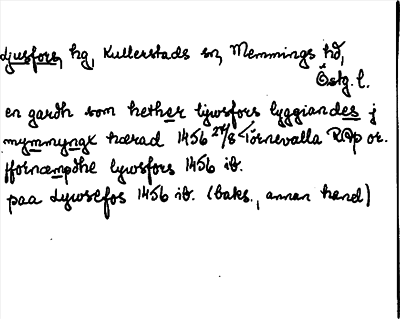 Ljusfors, hg, Kullerstads sn, Memmings hd,
Östg. l.
en gardh som hether liwsfors lyggiandes j
mymmyngx hærad 1456 24/8 Törnevalla RAp or.
ffornæmpdhe lywsfors 1456 ib.
paa Lywsefos 1456 ib. (baks., annan hand)